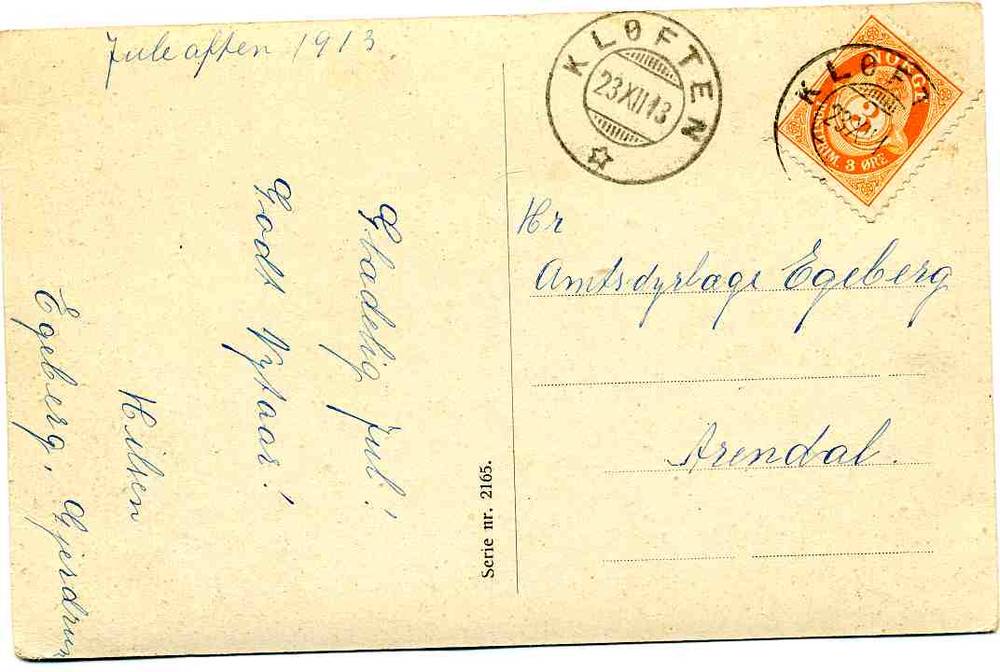 Juleaften 1913
Gladelig Jul!
Godt Nytaar!
Hilsen
Egeberg, Gjerdrum
Serie nr. 2165.
KLØFTEN
23 XII 13
KLØFT
23 X
NORGE
3
FRIM. 3 ØRE
Hr
Amtsdyrlæge Egeberg
Arendal.